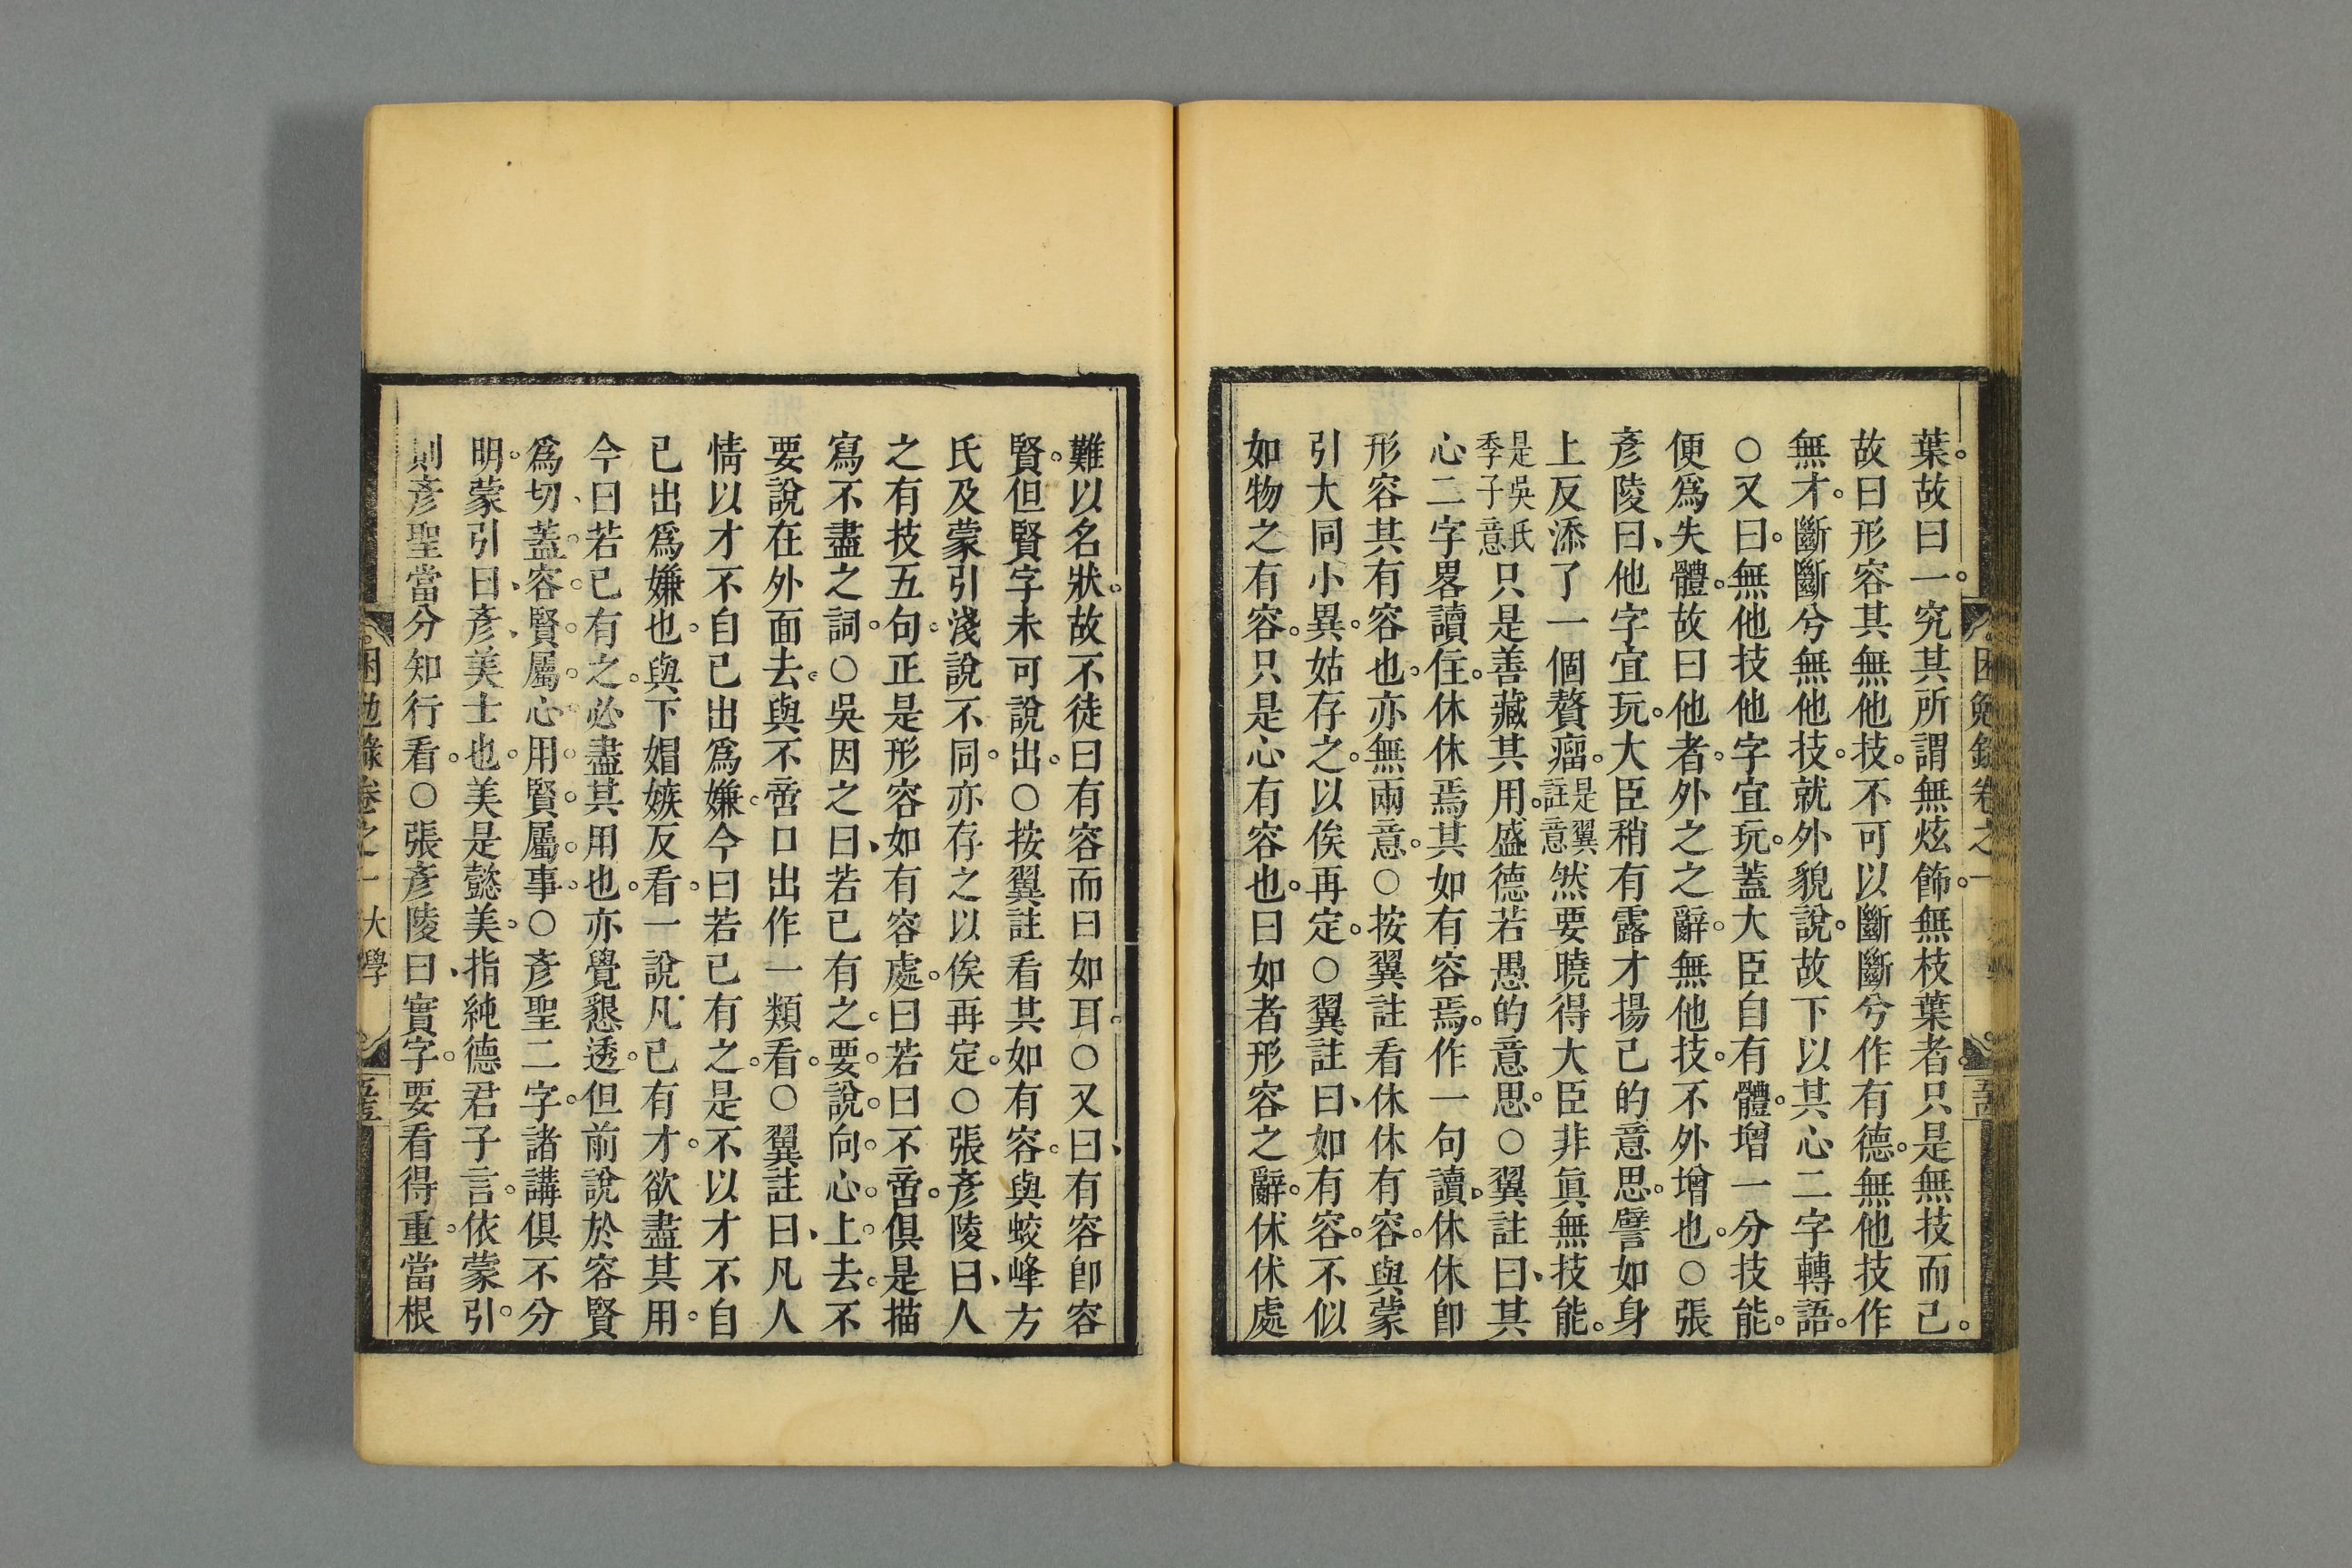 困勉錄卷之一
葉故曰一究其所謂無炫飾無枝葉者只是無技而已
故曰形容其無他技不可以斷斷兮作有德無他技作
無才斷斷兮無他技就外貌說故下以其心二字轉語
○又曰無他技他字宜玩蓋大臣自有體增一分技能
便為失體故曰他者外之之辭無他技不外增也○張
彥陵曰他字宜玩大臣稍有露才揚己的意思譬如身
上反添了一個贅瘤是翼註意然要曉得大臣非眞無技能
是吳氏季子意只是善藏其用盛德若愚的意思○翼註曰其
心二字畧讀住休休焉其如有容焉作一句讀休休卽
形容其有容也亦無兩意○按翼註看休休有容與蒙
引大同小異姑存之以俟再定○翼註曰如有容不似
如物之有容只是心有容也曰如者形容之辭休休處
難以名狀故不徒曰有容而曰如耳○又曰有容卽容
賢但賢字未可說出○按翼註看其如有容與蛟峰方
氏及蒙引淺說不同亦存之以俟再定○張彥陵曰人
之有技五句正是形容如有容處曰若曰不啻俱是描
寫不盡之詞○吳因之曰若已有之要說向心上去不
要說在外面去與不啻口出作一類看○翼註曰凡人
情以才不自已出爲嫌今曰若已有之是不以才不自
已出爲嫌也與下媢嫉反看一說凡已有才欲盡其用
今曰若已有之必盡其用也亦覺懇透但前說於容賢
爲切蓋容賢屬心用賢屬事○彥聖二字諸講俱不分
明蒙引曰彥美士也美是懿美指純德君子言依蒙引
則彥聖當分知行看○張彥陵曰實字要看得重當根
困勉錄卷之一 大學